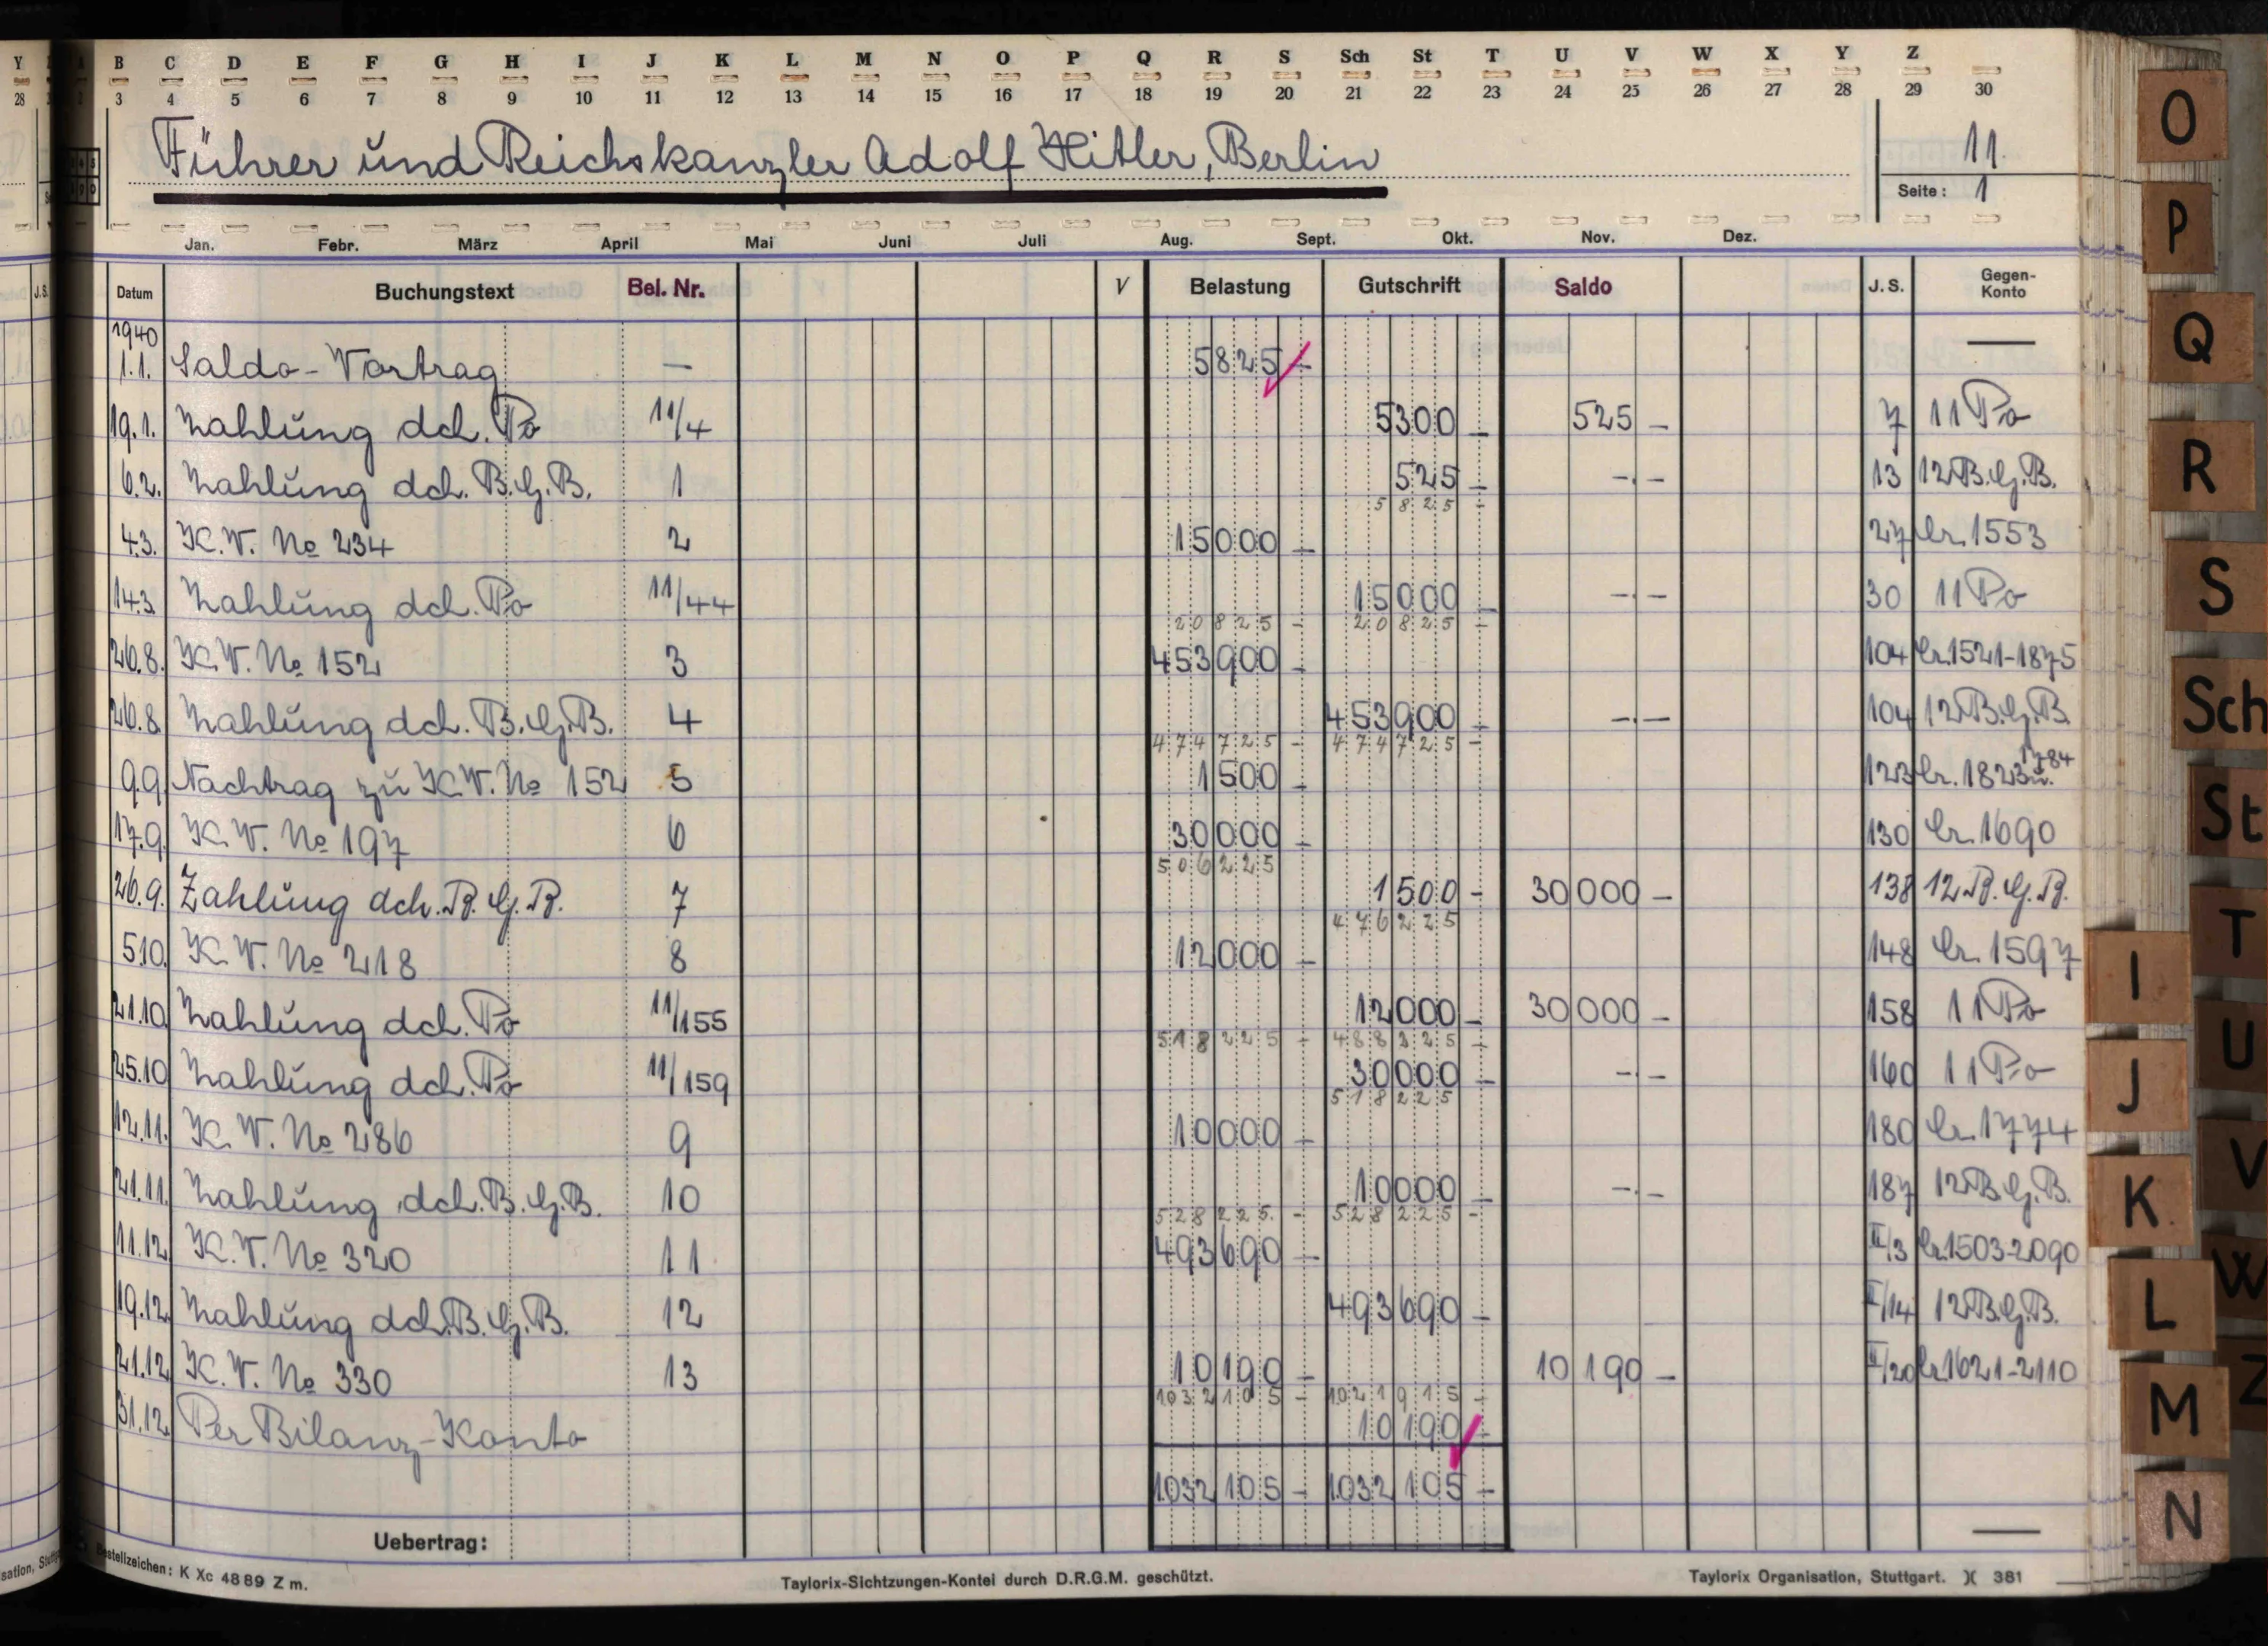 Y B C D E F G H I J K L M N O P Q R S Sch St T U V W X Y Z
28 3 4 5 6 7 8 9 10 11 12 13 14 15 16 17 18 19 20 21 22 23 24 25 26 27 28 29 30
Führer und Reichskanzler Adolf Hitler, Berlin
11.
Seite: 1
Jan. Febr. März April Mai Juni Juli Aug. Sept. Okt. Nov. Dez.
J.S. Datum Buchungstext Bel. Nr. V Belastung Gutschrift Saldo J. S. Gegen-Konto
1940
1.1. Saldo-Vortrag — 5825 – —
19.1. Zahlung dch. Po 11/4 5300 – 525 – 7 11 Po
6.2. Zahlung dch. B.G.B. 1 525 – -.- 13 12 B.G.B.
5825 -
4.3. K.W. No 234 2 15000 – 27 Cr. 1553
14.3. Zahlung dch. Po 11/44 15000 – -.- 30 11 Po
20825 - 20825 -
26.8. K.W. No 152 3 453900 – 104 Cr. 1521-1875
26.8. Zahlung dch. B.G.B. 4 453900 – -.- 104 12 B.G.B.
474725 - 474725 -
9.9. Nachtrag zu K.W. No 152 5 1500 – 123 Cr. 1823 u. 1784
17.9. K.W. No 197 6 30000 – 130 Cr. 1690
506225
26.9. Zahlung dch. B.G.B. 7 1500 – 30000 – 138 12 B.G.B.
476225
5.10. K.W. No 218 8 12000 – 148 Cr. 1597
21.10. Zahlung dch. Po 11/155 12000 – 30000 – 158 11 Po
518225 - 488225 -
25.10. Zahlung dch. Po 11/159 30000 – -.- 160 11 Po
518225
12.11. K.W. No 286 9 10000 – 180 Cr. 1774
21.11. Zahlung dch. B.G.B. 10 10000 – -.- 187 12 B.G.B.
528225. - 528225 -
11.12. K.W. No 320 11 493690 – II/3 Cr. 1503-2090
19.12. Zahlung dch. B.G.B. 12 493690 – II/14 12 B.G.B.
21.12. K.W. No 330 13 10190 – 10190 – II/20 Cr. 1621-2110
1032105 - 1021915 -
31.12. Per Bilanz-Konto 10190 –
1032105 – 1032105 –
Uebertrag: —
Bestellzeichen: K Xc 4889 Z m.
Taylorix-Sichtzungen-Kontei durch D.R.G.M. geschützt.
Taylorix Organisation, Stuttgart. )( 381
O
P
Q
R
S
Sch
St
T
U
V
W
Z
I
J
K
L
M
N